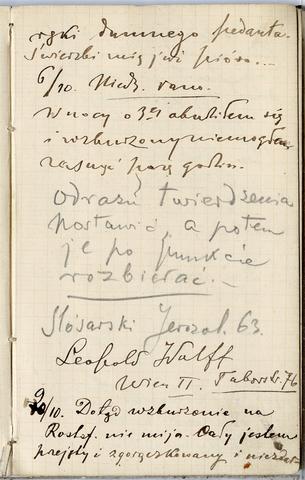 ręki dumnego pedanta.
Świerzbi mię już pióro...
6/10. Niedz. rano.
W nocy o 3ej obudziłem się
i wzburzony niemogłem
zasnąć parę godzin.
Odrazu twierdzenia
postawić, a potem
je po punkcie
rozbierać. —
Ślósarski Jerozol. 63.
Leopold Wolff
Wien II. Taborstr. 76
/10. Dotąd wzburzenie na
nie mija. Cały jestem
przejęty i zgorączkowany i